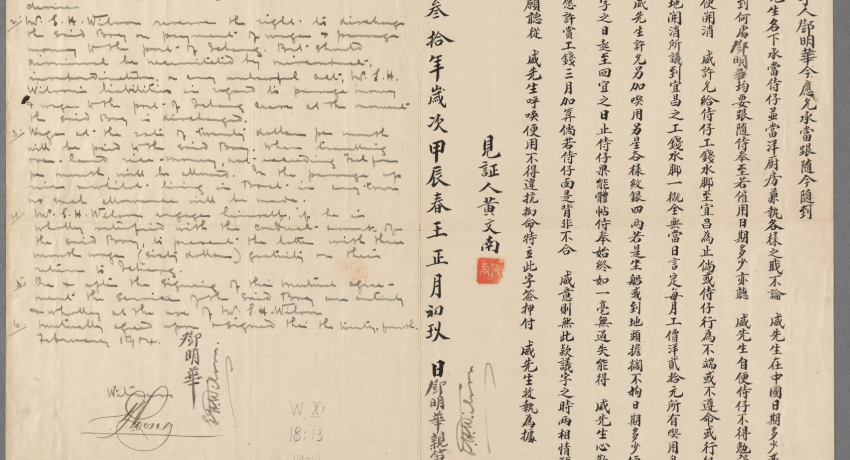 desire.
2/ Mr. E. H. Wilson reserve the right to discharge
the said Boy on payment of wages & passage
money to the port of Ichang. But should
dismissal be necessitated by misconduct,
insubordination, or any unlawful act, Mr. E. H.
Wilson's liabilities in regard to passage money
& wage to the port of Ichang cease at the moment
the said Boy is discharged.
3/ Wages at the rate of twenty dollars per month
will be paid to the said Boy. When travelling
over-land rice-money, not exceeding
per month, will be allowed. In the passage up
river whilst living in Boat
no such allowance will be made.
4/ Mr. E. H. Wilson engages himself, if he is
wholly satisfied with the conduct of
the said Boy, to present the latter with three
month wage (sixty dollars) gratuity on their
return to Ichang.
5/ On & after the signing of this mutual agree-
ment the service of the said Boy are entirely
& wholly at the use of Mr. E. H. Wilson
6/ Mutually agreed upon & signed this the twenty-fourth
February 1904.
鄧明華
E H Wilson
Witness
W. XI
18:13
人鄧明華今應允承當跟隨今隨到
先生名下承當侍仔並當洋廚房兼執各樣之職不論 威先生在中國日期多少
到何處鄧明華均要跟隨侍奉至若僱用日期多少亦聽 威先生自便侍仔不得勉強
便開消 威許允給侍仔工錢水腳至宜昌為止倘或侍仔行為不端或不遵命或行
地開消所議到宜昌之工錢水腳一概全無當日言定每月工價洋貳拾元所有喫用
威先生許允另加喫用另星各樣紋銀四兩若是坐船或到地頭擔擱不拘日期多少
字之日起至回宜之日止侍仔果能體帖侍奉始終如一毫無過失能得 威先生心
應許賞工錢三月加算倘若侍仔面是背非不合 威意則無此款議字之時兩相情
願認從 威先生呼喚便用不得違抗拗命特立此字簽押付 威先生收執為據
見証人黃文南
叁拾年歲次甲辰春王正月初玖日鄧明華親筆
E H Wilson